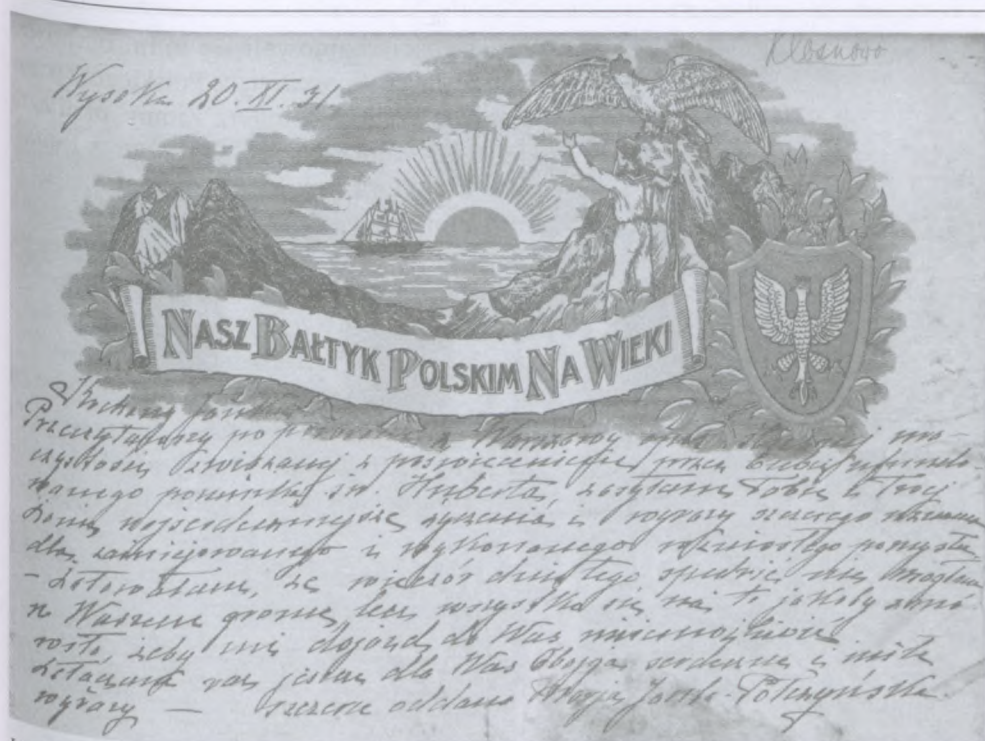 Kłosnowo
Wysoka 20.XI.31
NASZ BAŁTYK POLSKIM NA WIEKI
Kochany
Przeczytawszy po powrocie z Warszawy opis
czystości związanej z poświęceniem przez Ciebie ufundowa-
nego pomnika św. Huberta, zasyłam Tobie i Twej
żonie najserdeczniejsze życzenia i wyrazy szczerego uznania
dla zainicjowanego i wykonanego wzniosłego pomysłu
- Żałowałam, że wieczór dnia tego spędzić nie mogłam
w Waszem gronie, lecz wszystko się na to jakoby zmó-
wiło, żeby mi dojazd do Was uniemożliwić
Załączam raz jeszcze dla Was Obojga serdeczne i miłe
wyrazy — szczerze oddana Marja Janta-Połczyńska